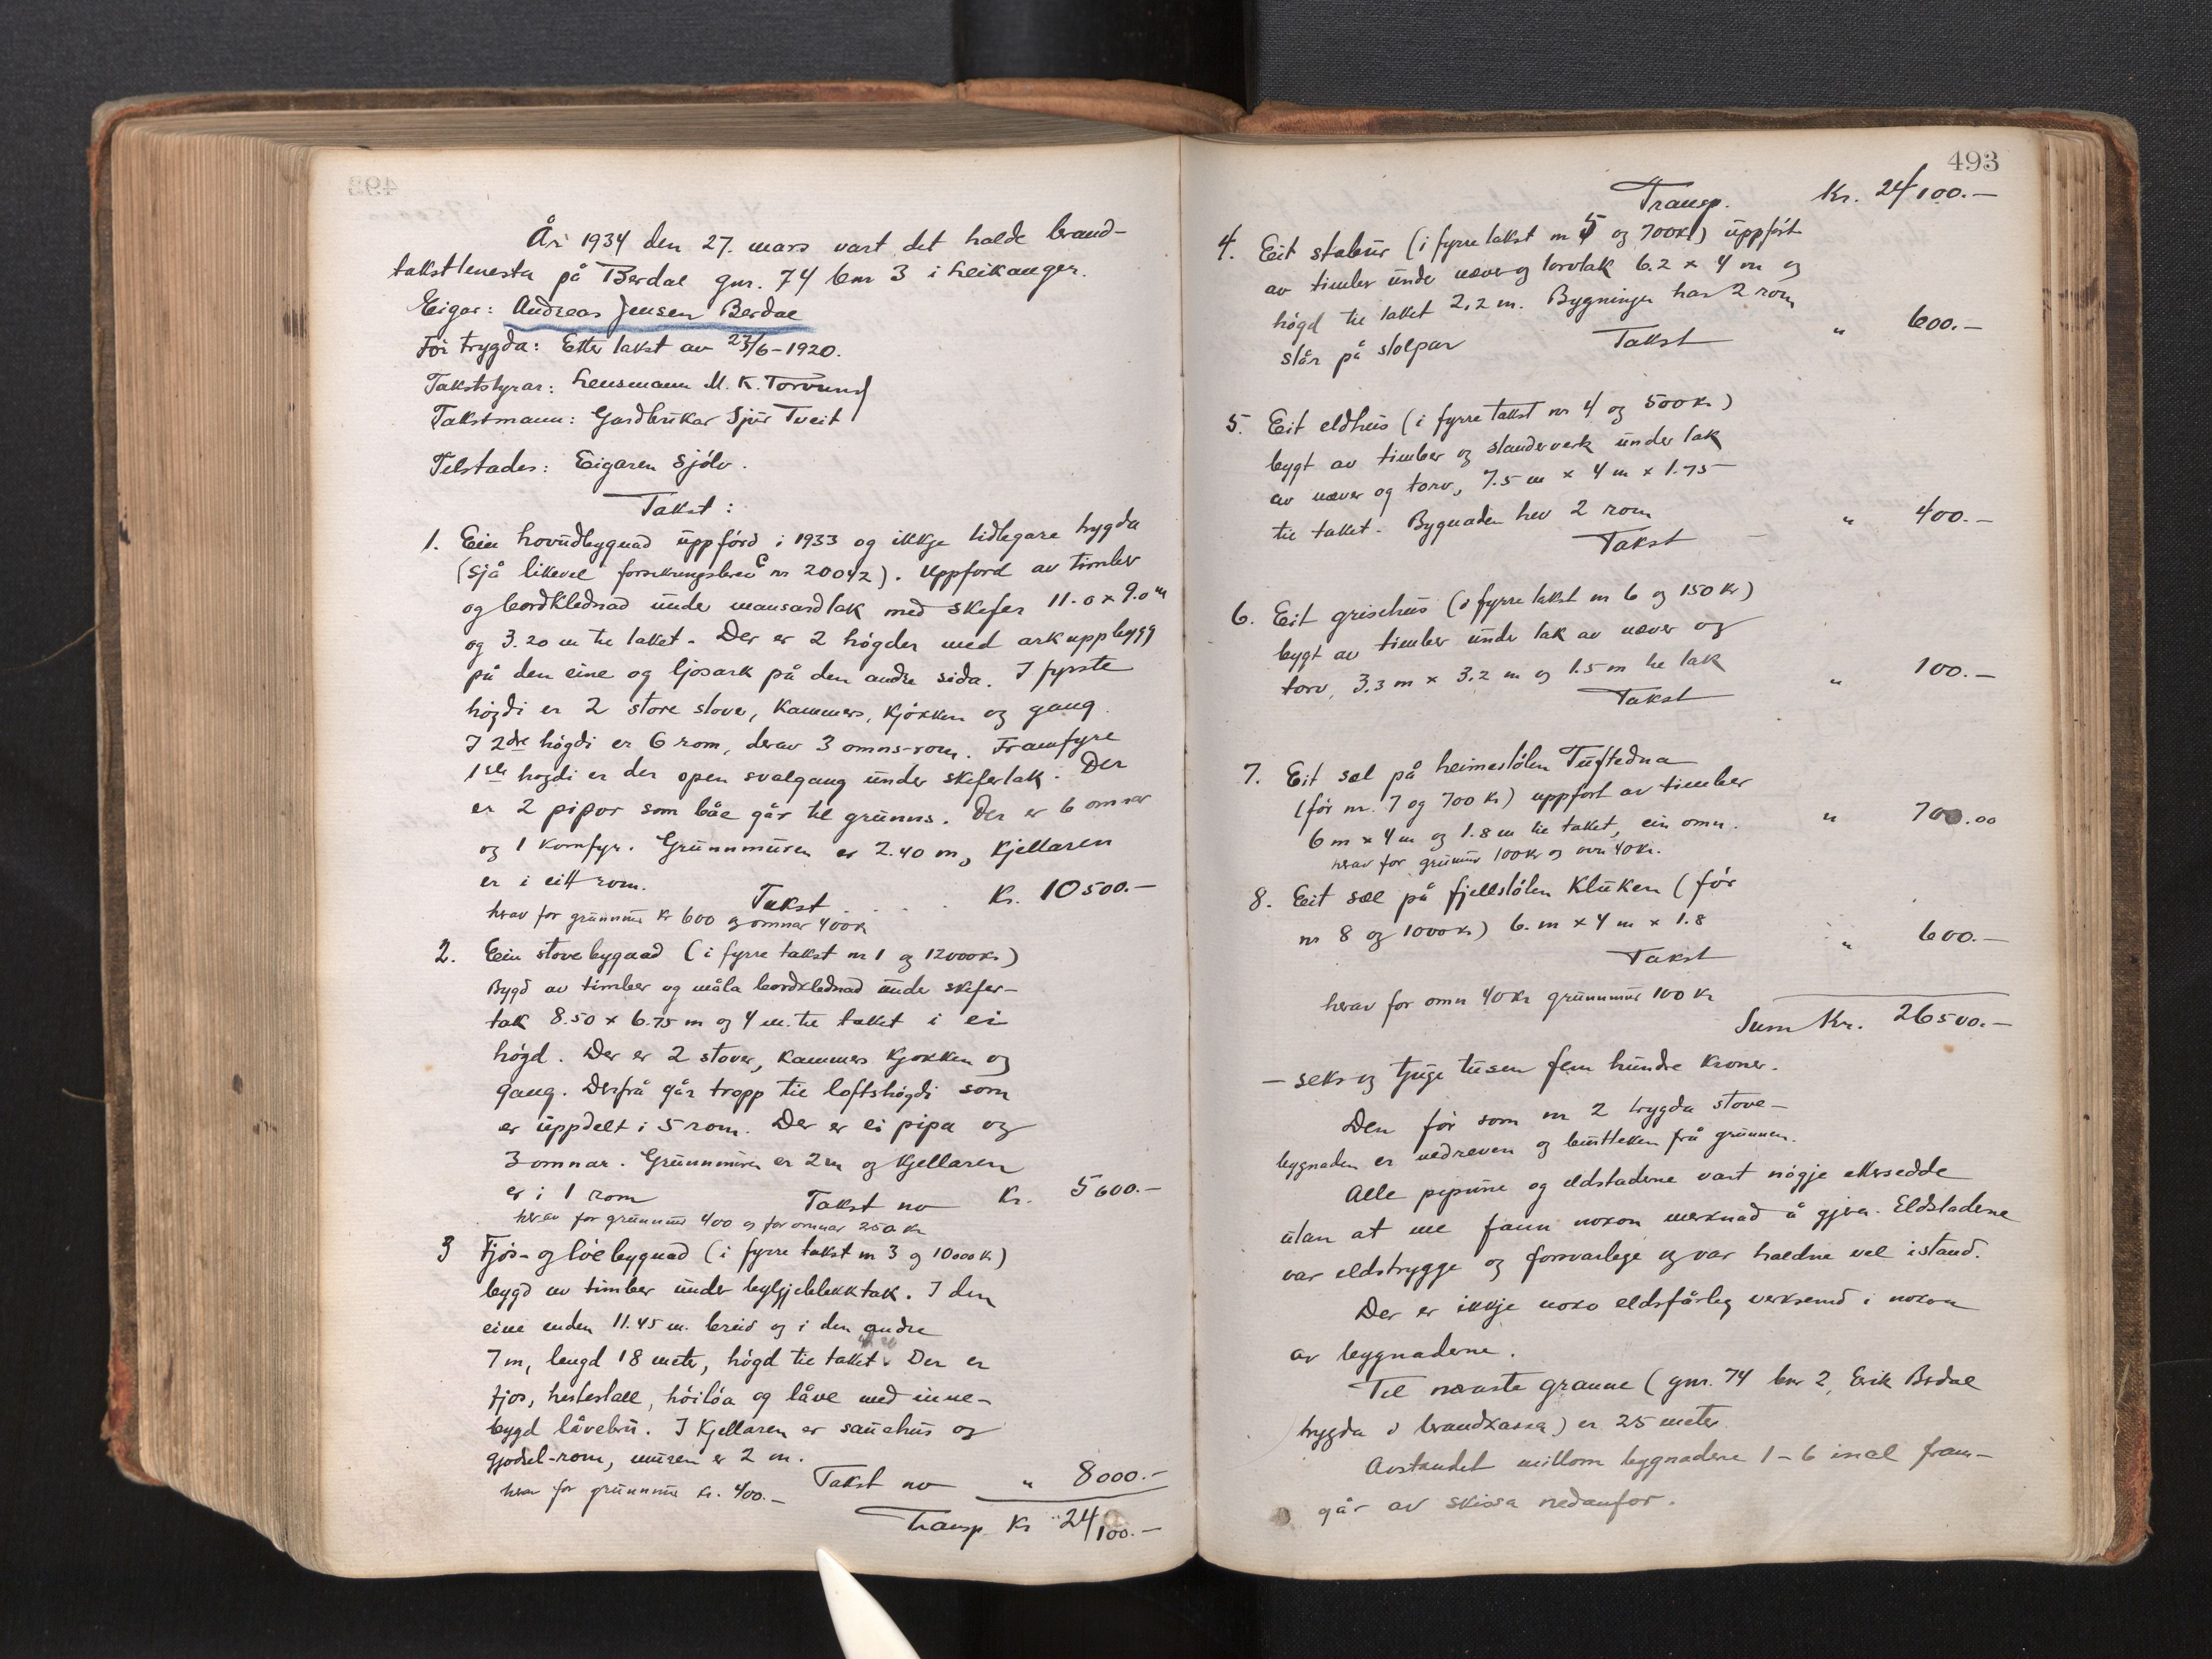 År 1934 den 27. mars vart det halde brand-
takstlenesta på Berdal gnr. 74 bnr 3 i Leikanger.
Eigar: Andreas Jensen Berdal
Før trygda: Etter takst av 23/6-1920.
Takststyrar: Lensmann M. K. Torvund
Takstmann: Gardbrukar Sjur Tveit
Tilstades: Eigaren sjølv.
Takst:
1. Ein hovudbygnad uppførd i 1933 og ikkje tidlegare trygda
(sjå likevel forsikringsbrev C nr 20042). Uppførd av timber
og bordklednad under mansardtak med skifer 11.0 x 9.0 m
og 3.20 m til taket. Der er 2 høgder med arkuppbygg
på den eine og ljosark på den andre sida. I fyrste
høgdi er 2 store stover, kammers, kjøkken og gang.
I 2dre høgdi er 6 rom, derav 3 omns-rom. Framfyre
1ste høgdi er der open svalgang under skifertak. Der
er 2 pipor som båe går til grunns. Der er 6 omnar
og 1 komfyr. Grunnmuren er 2.40 m, kjellaren
er i eitt rom.
Takst . . . . Kr. 10500.-
herav for grunnmur kr 600 og omnar 400 kr
2. Ein stovebygnad (i fyrre takst nr 1 og 12000 kr)
Bygd av timber og måla bordklednad under skifer-
tak 8.50 x 6.75 m og 4 m. til taket i ei
høgd. Der er 2 stover, kammers kjøkken og
gang. Derfrå går tropp til loftshøgdi som
er uppdelt i 5 rom. Der er ei pipa og
3 omnar. Grunnmuren er 2 m og kjellaren
er i 1 rom Takst no Kr. 5600.-
herav for grunnmur 400 og for omnar 250 kr
3 Fjøs- og løebygnad (i fyrre takst nr 3 og 10000 kr)
bygd av timber under bylgjeblekktak. I den
eine enden 11.45 m. breid og i den andre
7 m, lengd 18 meter, høgd til taket. Der er
fjøs, hestestall, høiløa og låve med inne-
bygd låvebru. I kjellaren er sauehus og
gjødsel-rom, muren er 2 m.
Takst no " 8000.-
herav for grunnmur kr. 400.-
Transp. Kr 24100.-
493
Transp. Kr. 24100.-
4. Eit stabur (i fyrre takst nr 5 og 700 kr) uppført
av timber under never og torvtak 6.2 x 4 m og
høgd til taket 2,2 m. Bygningen har 2 rom
står på stolpar Takst " 600.-
5. Eit eldhus (i fyrre takst nr 4 og 500 kr)
bygt av timber og standerverk under tak
av never og torv, 7.5 m x 4 m x 1.75
til taket. Bygnaden hev 2 rom
Takst " 400.-
6. Eit grisehus (i fyrre takst nr 6 og 150 kr)
bygt av timber under tak av never og
torv, 3.3 m x 3.2 m og 1.5 m til tak
Takst " 100.-
7. Eit sel på heimestølen Tuftedna
(før nr. 7 og 700 kr) uppført av timber
6 m x 4 m og 1.8 m til taket, ein omn. " 700.00
herav for grunnmur 100 kr og ovn 40 kr.
8. Eit sel på fjellstølen Kluken (før
nr 8 og 1000 kr) 6. m x 4 m x 1.8
Takst " 600.-
herav for omn 40 kr grunnmur 100 kr
Sum Kr. 26500.-
- seks og tjuge tusen fem hundre kroner.
Den før som nr 2 trygda stove-
bygnaden er nedreven og burtteken frå grunnen.
Alle pipune og eldstadene vart nøgje ettersedde
utan at me fann nokon merknad å gjera. Eldstadene
var eldstrygge og forsvarlege og var haldne vel istand.
Der er ikkje noko eldsfårleg verksemd i nokon
av bygnadene.
Til næraste granne (gnr. 74 bnr 2, Erik Berdal
trygda i brandkassa) er 25 meter.
Avstandet millom bygnadene 1-6 incl fram-
går av skissa nedanfor.